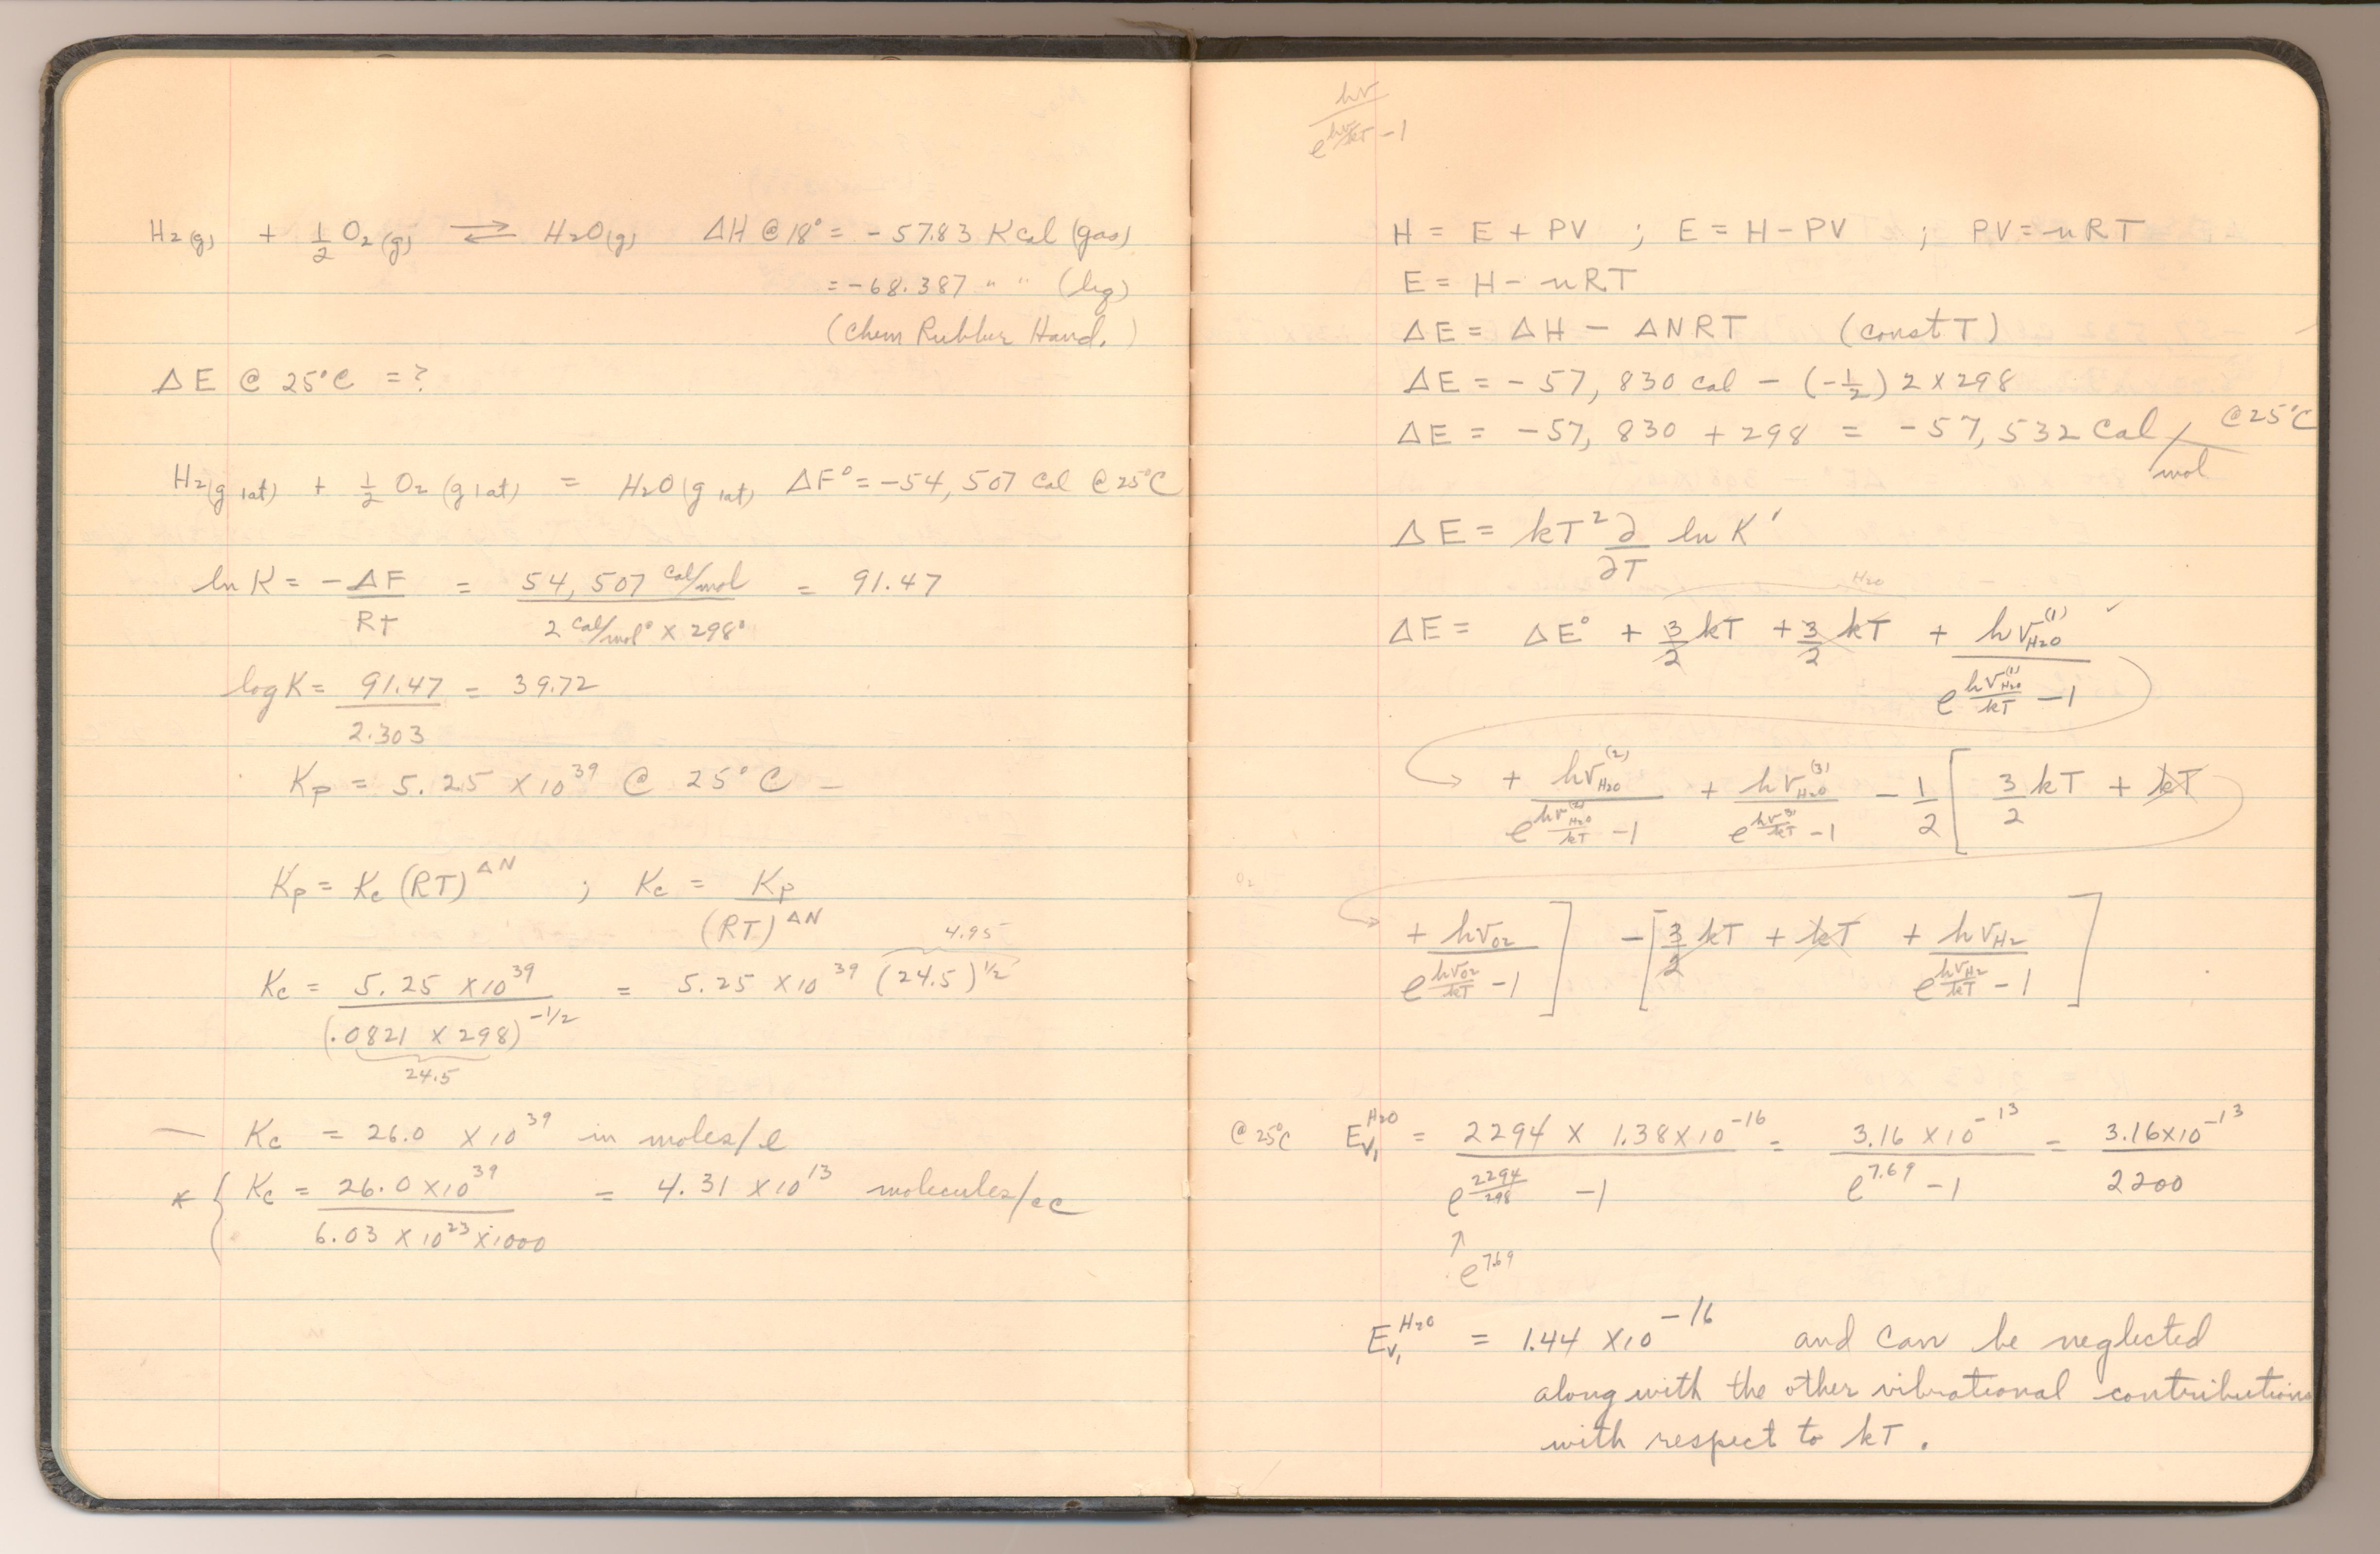 H2(g) + 1/2 O2(g) ⇌ H2O(g) ΔH @ 18° = -57.83 Kcal (gas)
= -68.387 " " (liq)
(Chem Rubber Hand.)
ΔE @ 25°C = ?
H2(g 1at) + 1/2 O2 (g 1at) = H2O(g 1at) ΔF° = -54,507 Cal @ 25°C
ln K = -ΔF/RT = 54,507 Cal/mol / 2 Cal/mol° × 298° = 91.47
log K = 91.47/2.303 = 39.72
Kp = 5.25 × 10^39 @ 25°C –
Kp = Kc (RT)^ΔN ; Kc = Kp/(RT)^ΔN
4.95
Kc = 5.25 × 10^39 / (.0821 × 298)^-1/2 = 5.25 × 10^39 (24.5)^1/2
24.5
— Kc = 26.0 × 10^39 in moles/l
* { Kc = 26.0 × 10^39 / 6.03 × 10^23 × 1000 = 4.31 × 10^13 molecules/cc
hν / e^hν/kT - 1
H = E + PV ; E = H - PV ; PV = nRT
E = H - nRT
ΔE = ΔH - ΔNRT (const T)
ΔE = -57,830 cal - (-1/2) 2 × 298
ΔE = -57,830 + 298 = -57,532 Cal/mol @ 25°C
ΔE = kT² ∂/∂T ln K'
H2O
ΔE = ΔE° + 3/2 kT + 3/2 kT + hν_H2O^(1) / e^hν_H2O^(1)/kT - 1
+ hν_H2O^(2) / e^hν_H2O^(2)/kT - 1 + hν_H2O^(3) / e^hν^(3)/kT - 1 - 1/2 [ 3/2 kT + kT
O2
+ hν_O2 / e^hν_O2/kT - 1 ] - [ 3/2 kT + kT + hν_H2 / e^hν_H2/kT - 1 ]
@ 25°C E_V1^H2O = 2294 × 1.38 × 10^-16 / e^2294/298 - 1 = 3.16 × 10^-13 / e^7.69 - 1 = 3.16 × 10^-13 / 2200
↑
e^7.69
E_V1^H2O = 1.44 × 10^-16 and can be neglected
along with the other vibrational contributions
with respect to kT.